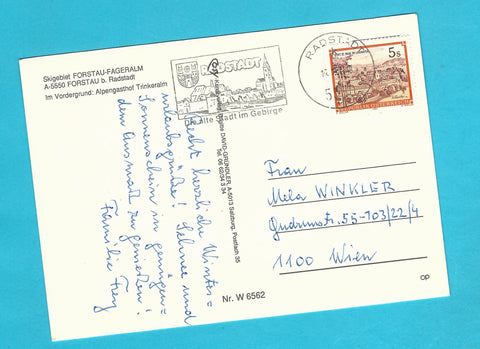 Skigebiet FORSTAU-FAGERALM
A-5550 FORSTAU b. Radstadt
Im Vordergrund: Alpengasthof Trinkeralm
RADSTADT
Die alte Stadt im Gebirge
RADSTADT
5
5s
REPUBLIK ÖSTERREICH
DAVID-GRÜNDLER, A-5013 Salzburg, Postfach 35
Recht herzliche Winter=
urlaubsgrüße! Schnee und
Sonnenschein in genügen=
dem Ausmaß zu genießen!
Familie Frey
Frau
Mela WINKLER
Gudrunstr. 55-103/22/4
1100 Wien
Nr. W 6562
op